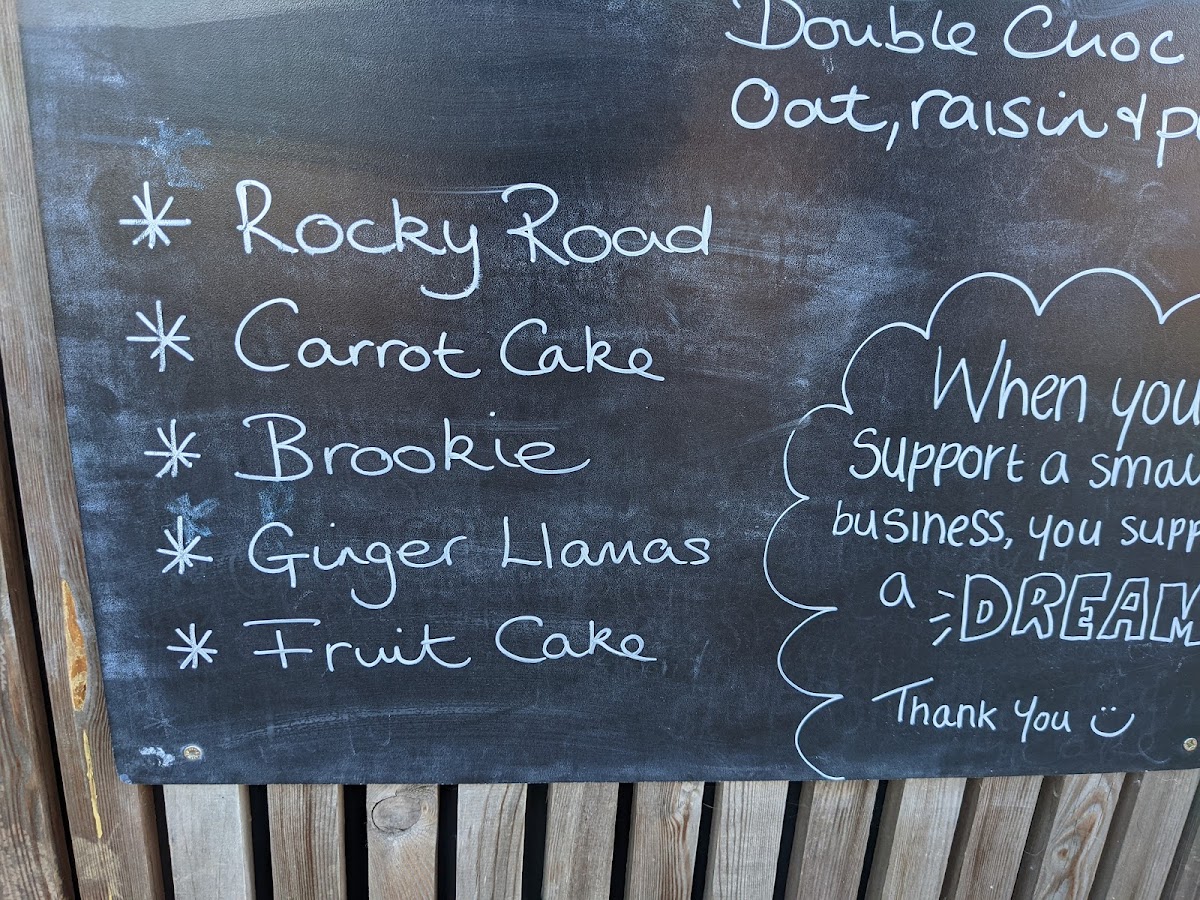 Double Choc
Oat, raisin &
* Rocky Road
* Carrot Cake
* Brookie
* Ginger Llamas
* Fruit Cake
When you
Support a
business, you
a DREAM
Thank you